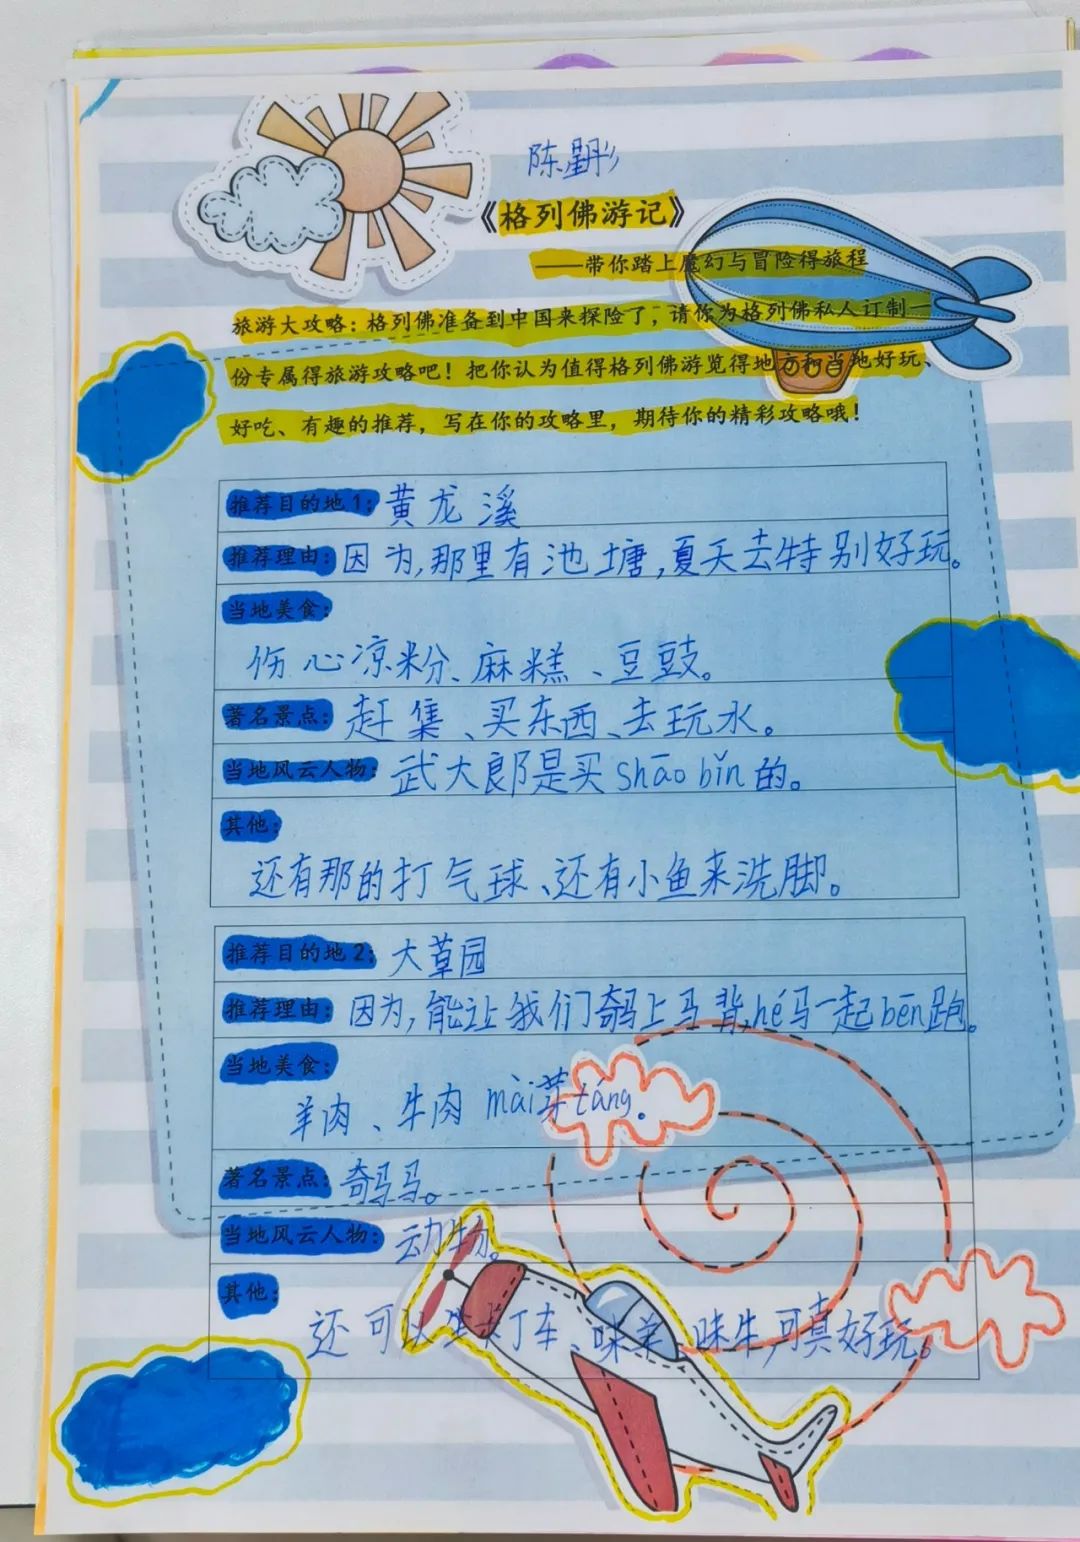 陈星彤
《格列佛游记》
——带你踏上魔幻与冒险得旅程
旅游大攻略：格列佛准备到中国来探险了，请你为格列佛私人订制一
份专属得旅游攻略吧！把你认为值得格列佛游览得地方和当地好玩、
好吃、有趣的推荐，写在你的攻略里，期待你的精彩攻略哦！
推荐目的地1：黄龙溪
推荐理由：因为,那里有池塘,夏天去特别好玩。
当地美食：
伤心凉粉、麻糕、豆豉。
著名景点：赶集、买东西、去玩水。
当地风云人物：武大郎是买shāo bǐn的。
其他：
还有那的打气球、还有小鱼来洗脚。
推荐目的地2：大草园
推荐理由：因为,能让我们骑上马背,hé马一起bēn跑。
当地美食：
羊肉、牛肉 mài芽táng。
著名景点：骑马。
当地风云人物：动物。
其他：
还可以坐卡丁车、味羊、味牛,可真好玩。